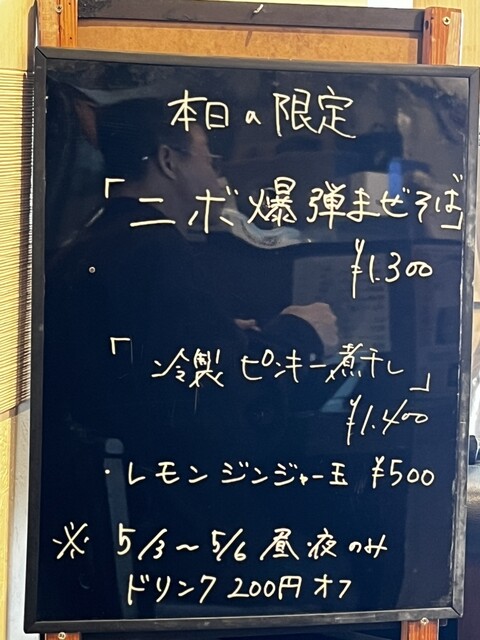 本日の限定
「ニボ爆弾まぜそば」
¥1.300
「冷製ピンキー煮干し」
¥1.400
・レモンジンジャー玉 ¥500
※ 5/3〜5/6 昼・夜のみ
ドリンク200円オフ